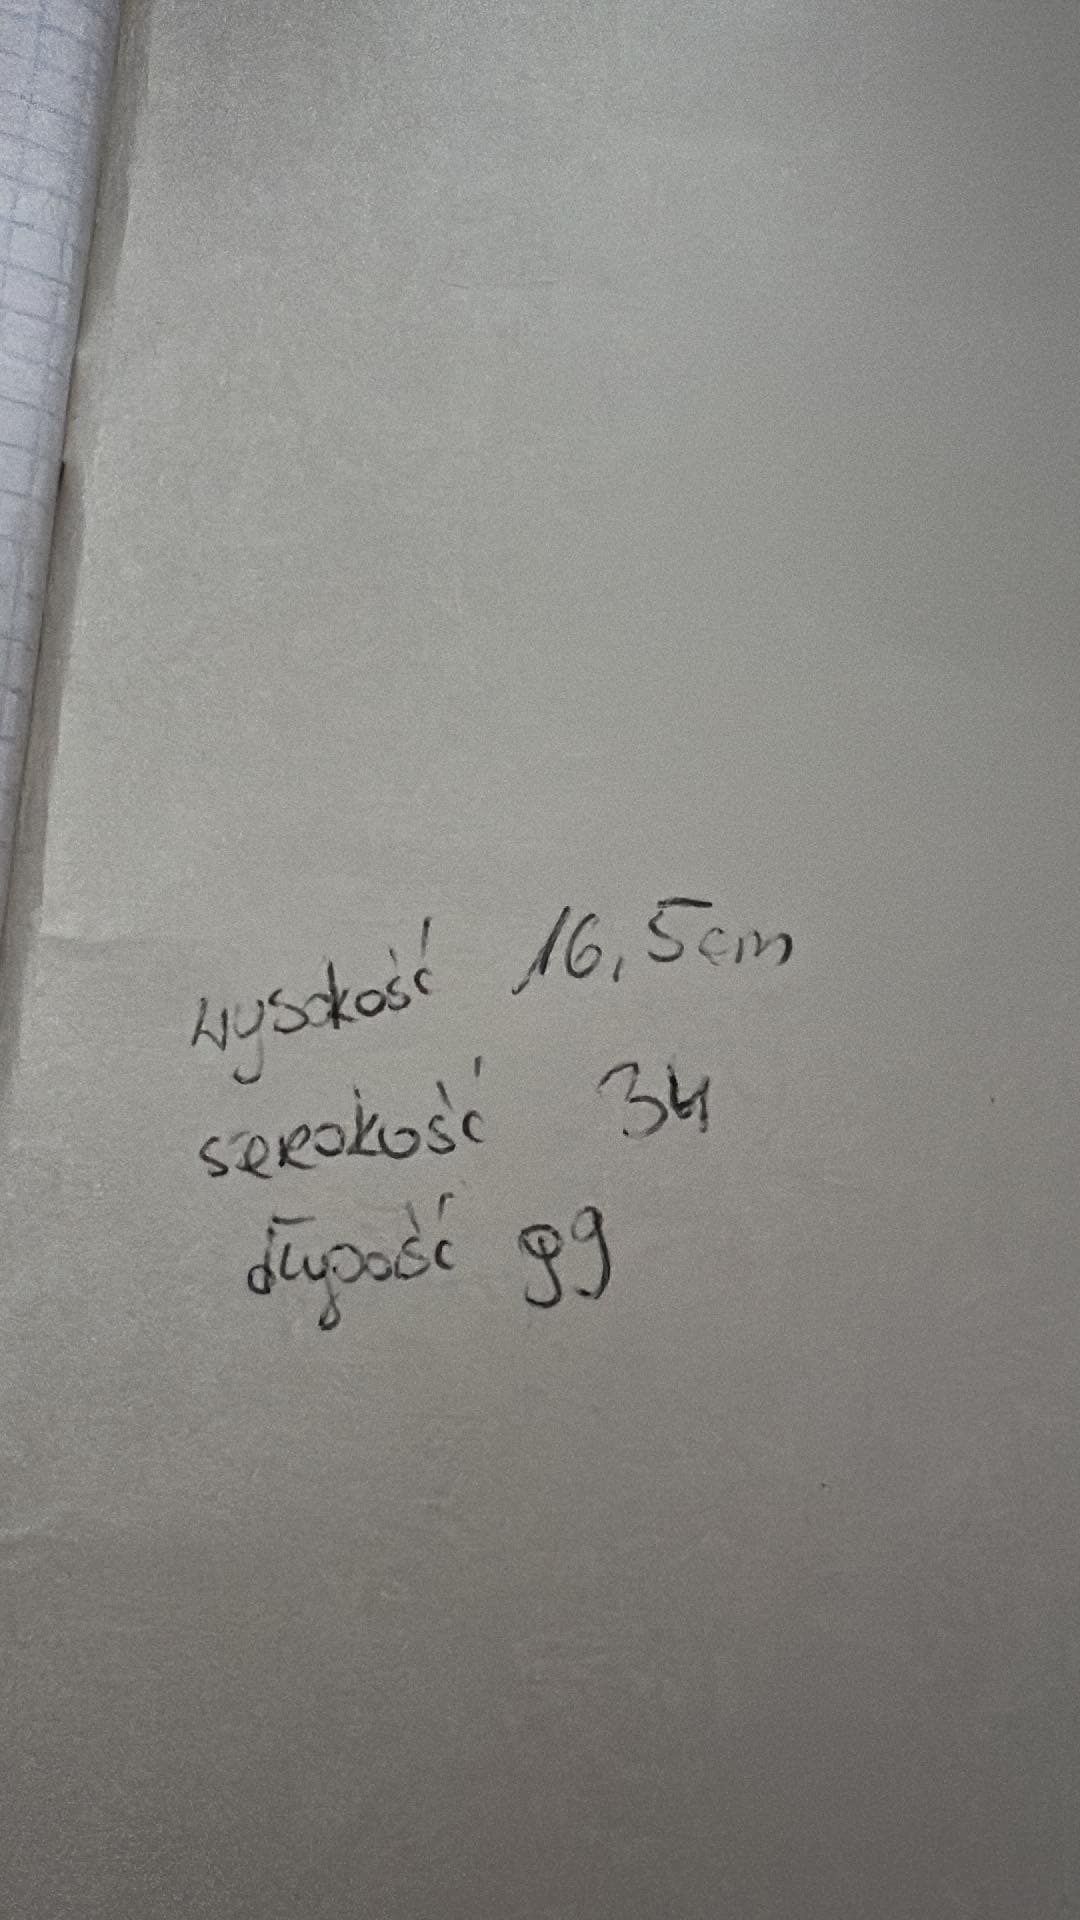 wysokość 16,5cm
serokość 34
długość 99